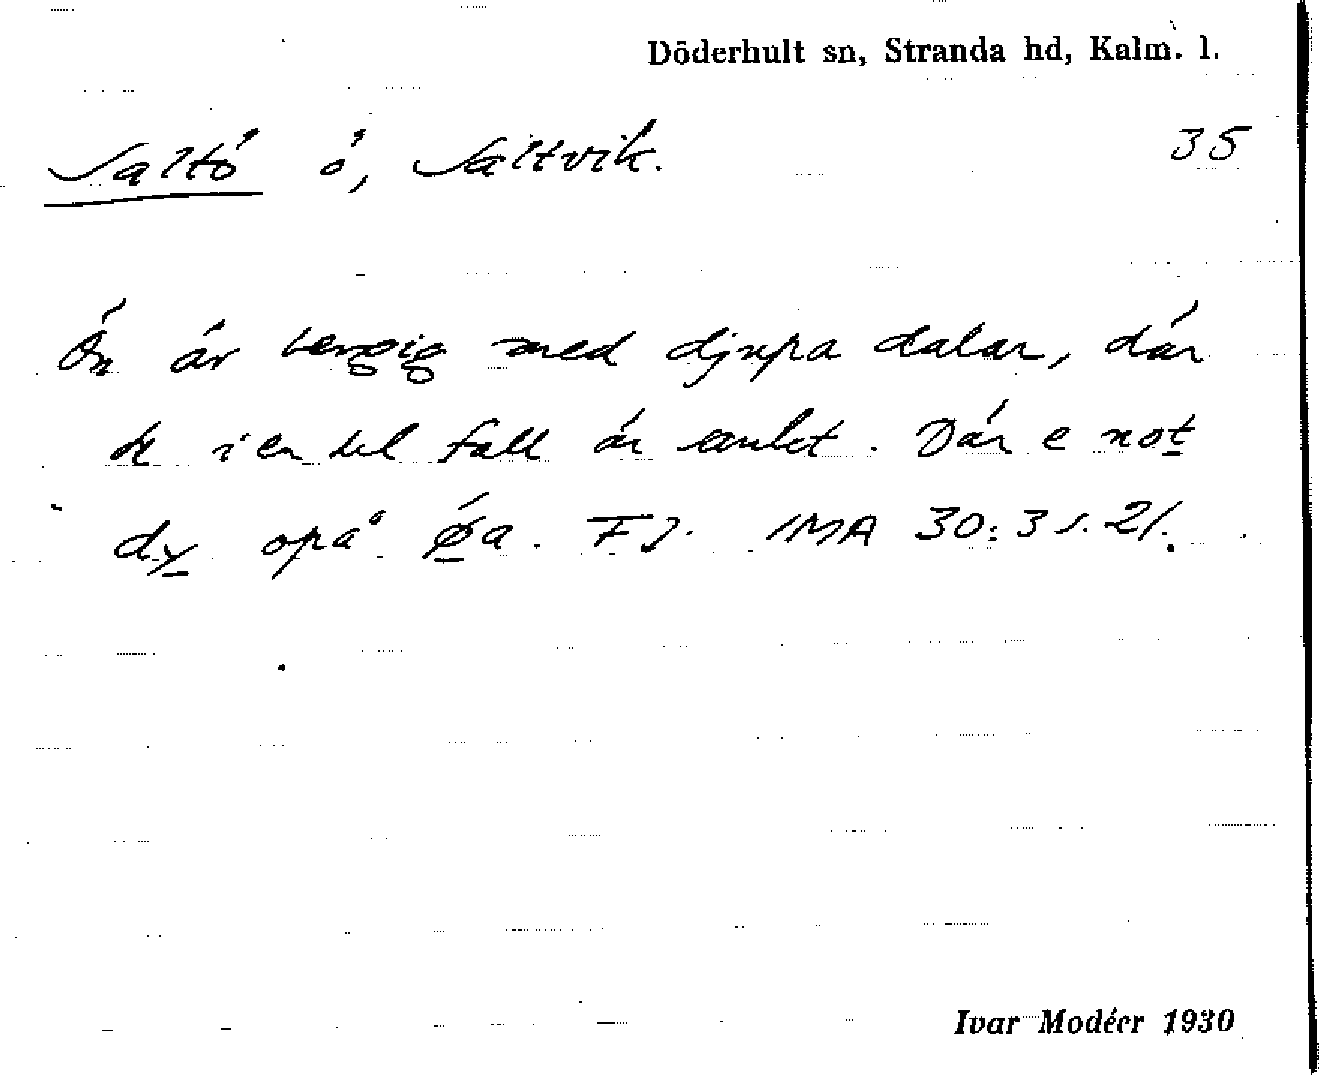 Döderhult sn, Stranda hd, Kalm. l.
Saltö ö, Saltvik. 35
Ön är bergig med djupa dalar, där
i en del fall är sankt. Där e not
dy opå øa. FJ. IMA 30:3 s. 21.
Ivar Modéer 1930